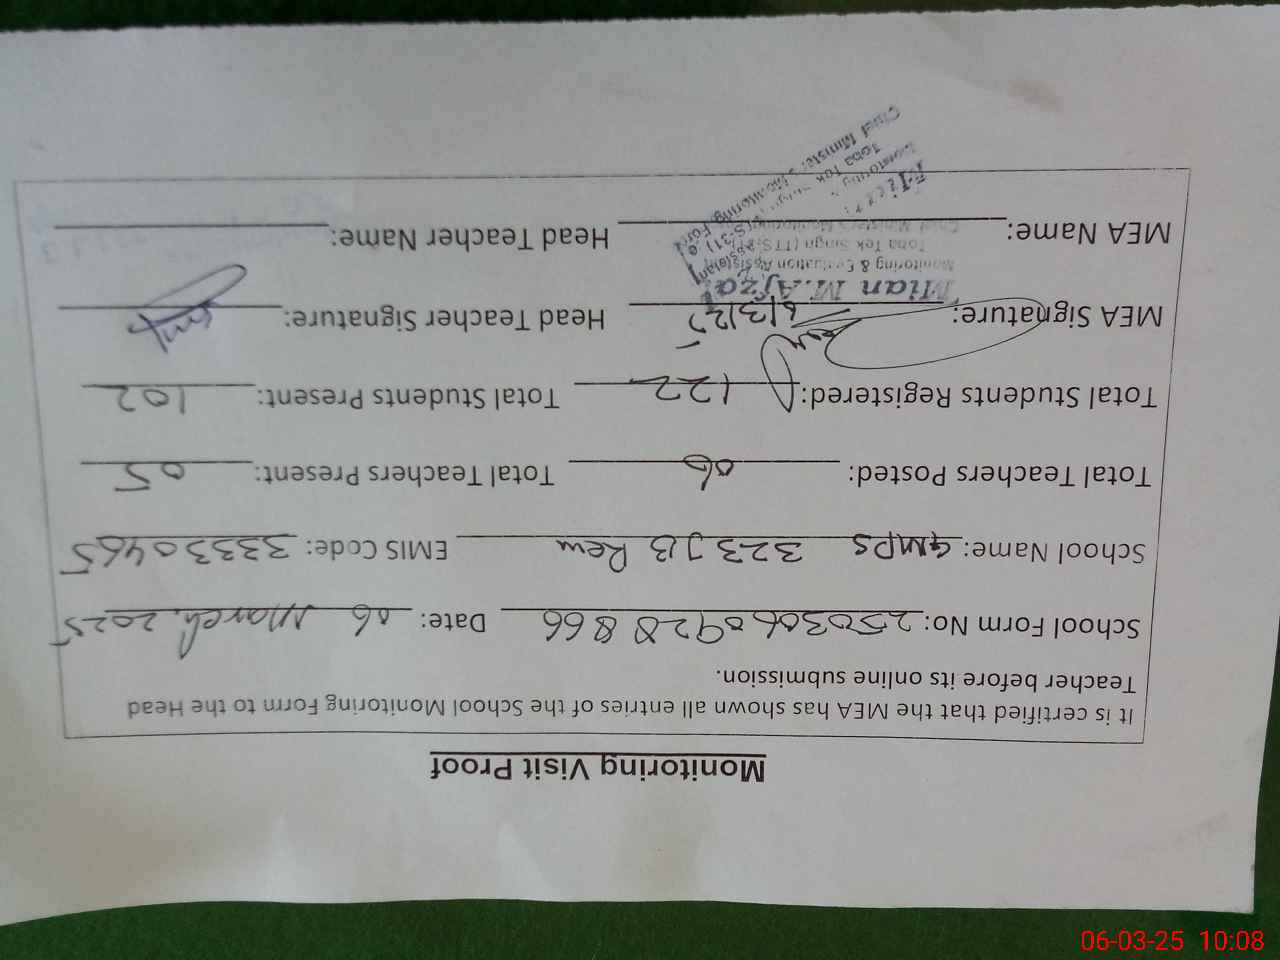 Monitoring Visit Proof
It is certified that the MEA has shown all entries of the School Monitoring Form to the Head
Teacher before its online submission.
School Form No: 2503060928866 Date: 06 March, 2025
School Name: GMPS 323 JB Rew EMIS Code: 33330465
Total Teachers Posted: 06 Total Teachers Present: 05
Total Students Registered: 122 Total Students Present: 102
MEA Signature: 6/3/25 Head Teacher Signature:
Mian M. Afzal
Monitoring & Evaluation Assistant
Toba Tek Singh (TTS-31)
Chief Minister's Monitoring Force
MEA Name: Head Teacher Name:
06-03-25 10:08